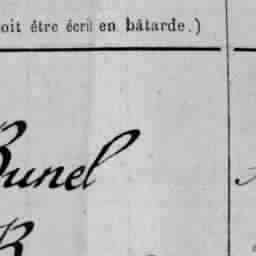 oit être écrit en bâtarde.)
Bunel
B